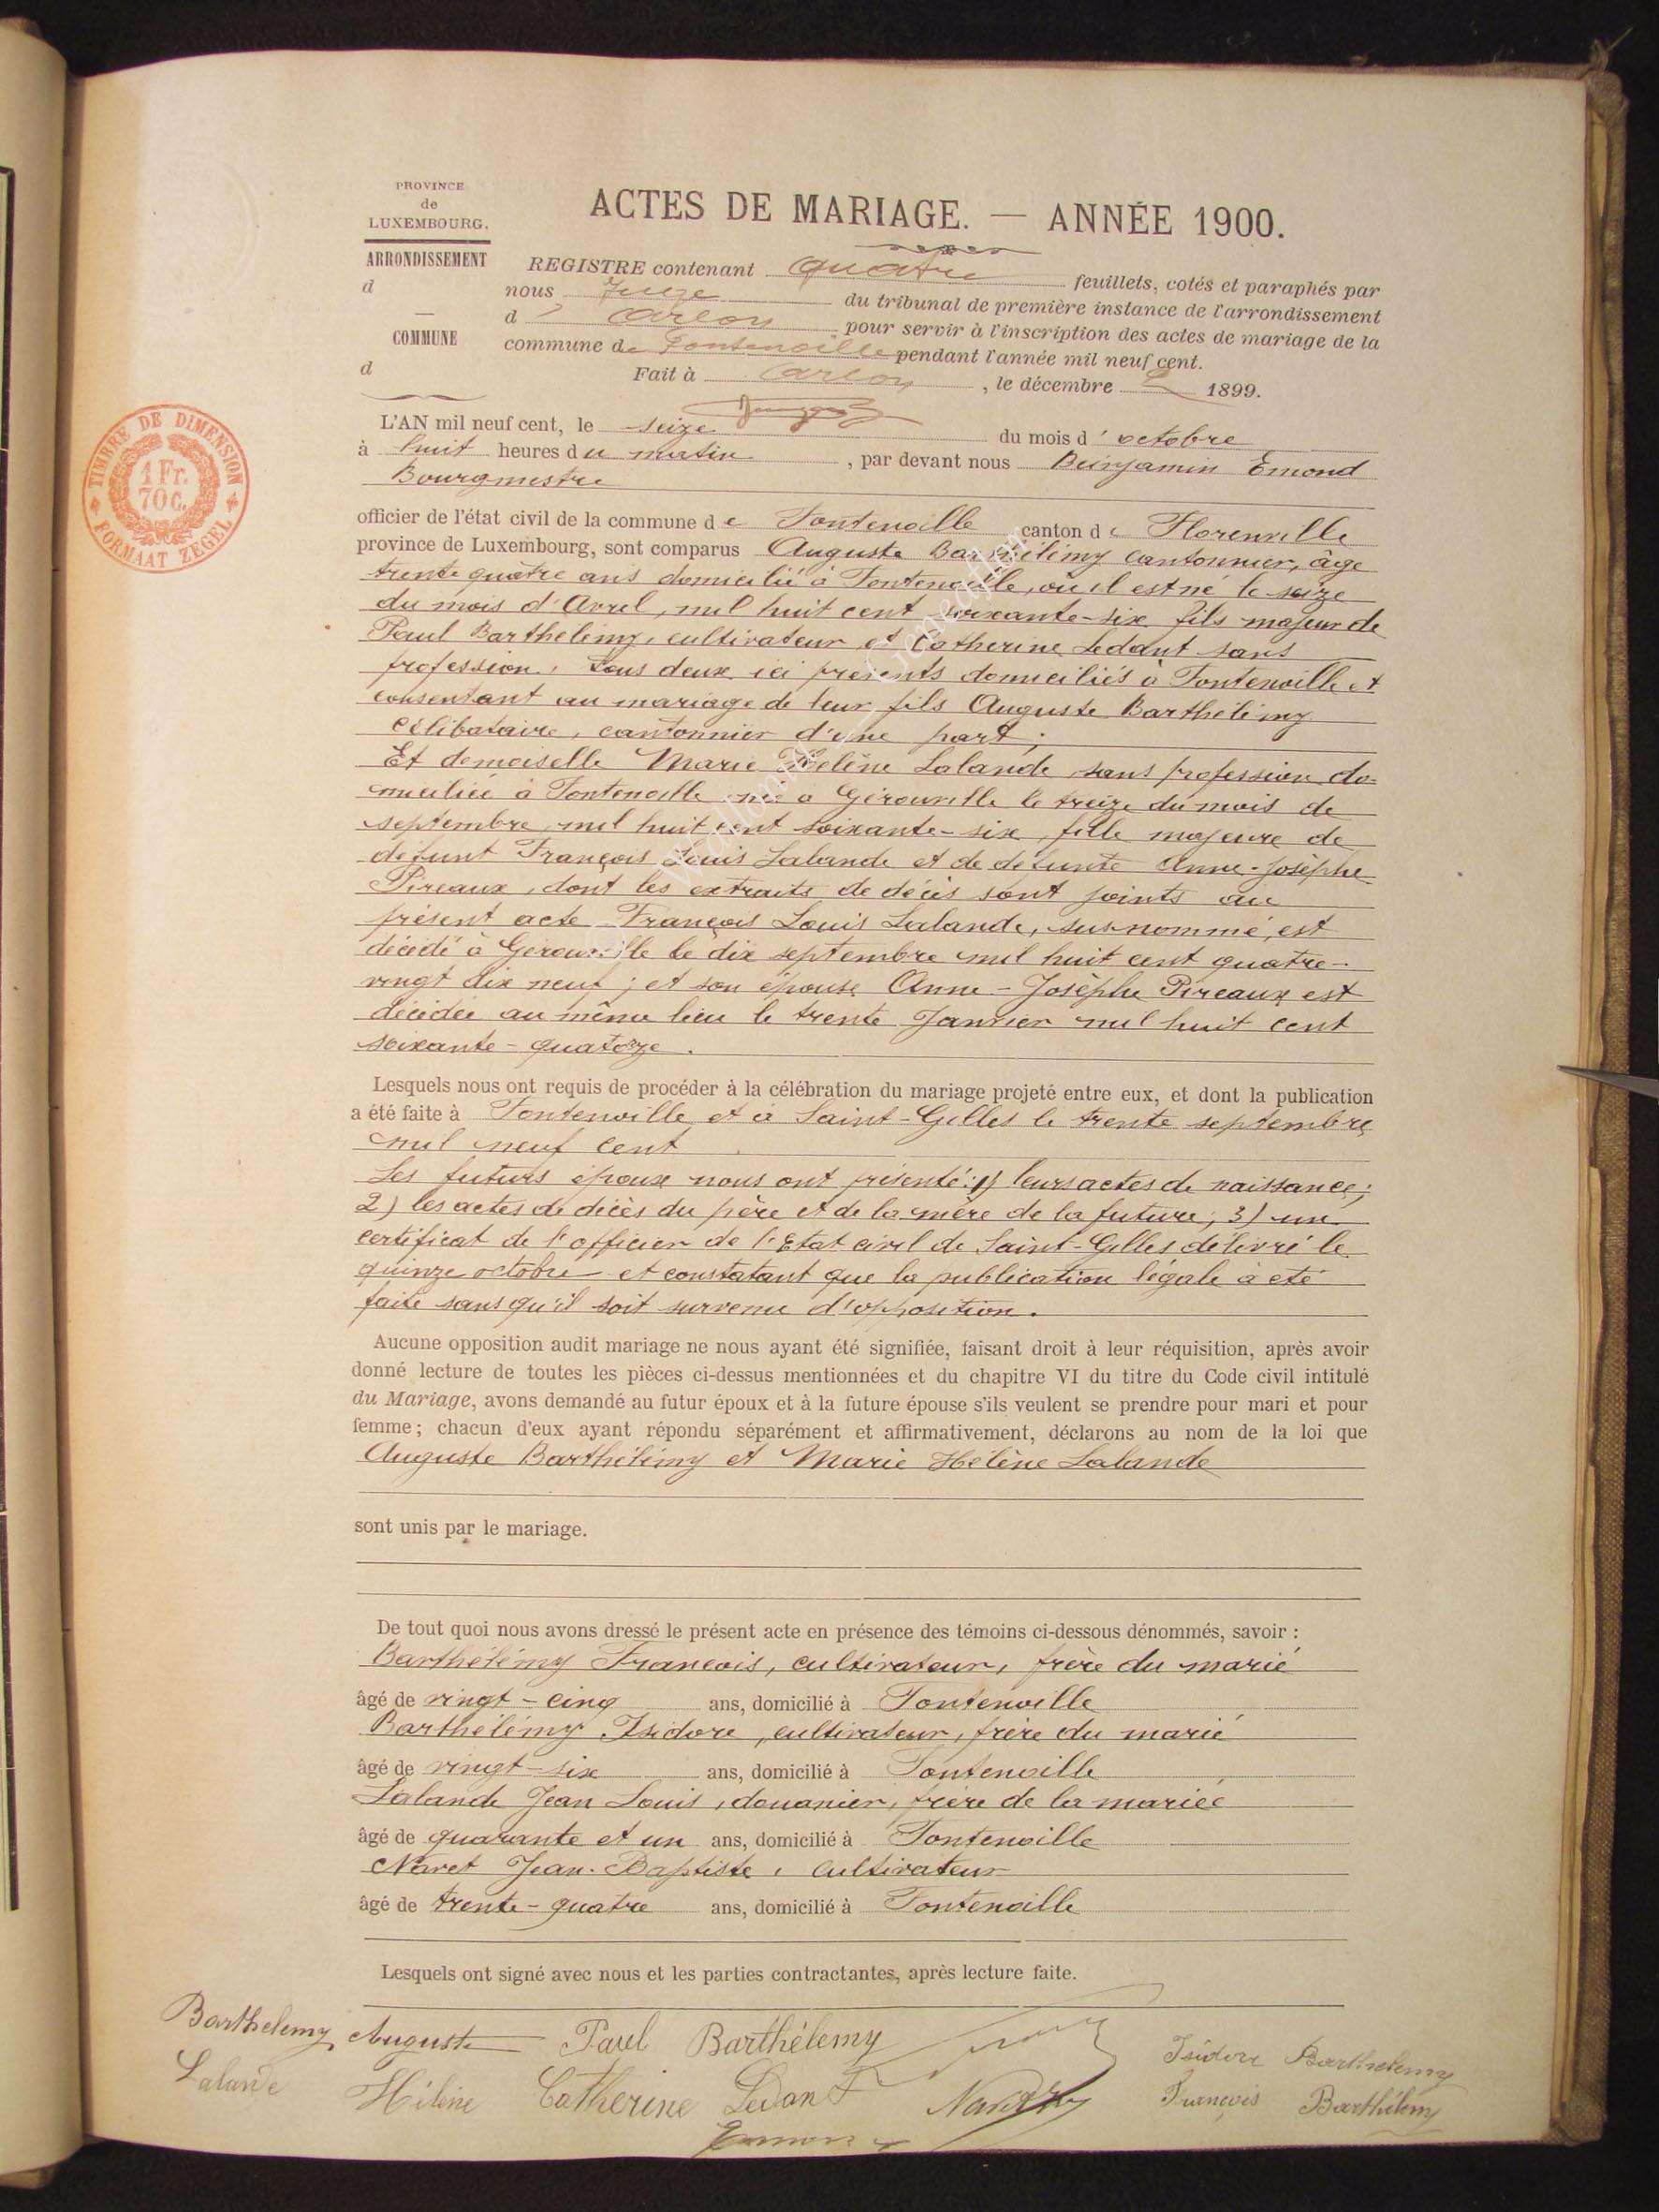 PROVINCE
de
LUXEMBOURG.
ARRONDISSEMENT
d
COMMUNE
d
ACTES DE MARIAGE. — ANNÉE 1900.
REGISTRE contenant quatre feuillets, cotés et paraphés par
nous Juge du tribunal de première instance de l'arrondissement
d'Arlon pour servir à l'inscription des actes de mariage de la
commune de Fontenoille pendant l'année mil neuf cent.
Fait à Arlon, le décembre 2 1899.
TIMBRE DE DIMENSION
1 Fr.
70 C.
FORMAAT ZEGEL
L'AN mil neuf cent, le seize du mois d'octobre
à huit heures du matin, par devant nous Benjamin Emond
Bourgmestre
officier de l'état civil de la commune de Fontenoille canton de Florenville
province de Luxembourg, sont comparus Auguste Barthélémy cantonnier, âge
trente quatre ans domicilié à Fontenoille, où il est né le seize
du mois d'Avril, mil huit cent soixante-six fils majeur de
Paul Barthélémy, cultivateur et Catherine Ledant sans
profession, tous deux ici présents domiciliés à Fontenoille et
consentant au mariage de leur fils Auguste Barthélémy
célibataire, cantonnier d'une part;
Et demoiselle Marie Hélène Lalande sans profession do-
miciliée à Fontenoille née à Gérouville le treize du mois de
septembre mil huit cent soixante-six, fille majeure de
défunt François Louis Lalande et de défunte Anne-Josèphe
Pireaux, dont les extraits de décès sont joints au
présent acte François Louis Lalande, susnommé, est
décédé à Gérouville le dix septembre mil huit cent quatre-
vingt dix neuf; et son épouse Anne-Josèphe Pireaux est
décédée au même lieu le trente Janvier mil huit cent
soixante-quatorze.
Lesquels nous ont requis de procéder à la célébration du mariage projeté entre eux, et dont la publication
a été faite à Fontenoille et à Saint-Gilles le trente septembre
mil neuf cent
Les futurs époux nous ont présenté: 1) leurs actes de naissance;
2) les actes de décès du père et de la mère de la future; 3) un
certificat de l'officier de l'Etat civil de Saint-Gilles délivré le
quinze octobre et constatant que la publication légale à été
faite sans qu'il soit survenu d'opposition.
Aucune opposition audit mariage ne nous ayant été signifiée, faisant droit à leur réquisition, après avoir
donné lecture de toutes les pièces ci-dessus mentionnées et du chapitre VI du titre du Code civil intitulé
du Mariage, avons demandé au futur époux et à la future épouse s'ils veulent se prendre pour mari et pour
femme; chacun d'eux ayant répondu séparément et affirmativement, déclarons au nom de la loi que
Auguste Barthélémy et Marie Hélène Lalande
sont unis par le mariage.
De tout quoi nous avons dressé le présent acte en présence des témoins ci-dessous dénommés, savoir :
Barthélémy François, cultivateur, frère du marié
âgé de vingt-cinq ans, domicilié à Fontenoille
Barthélémy Isidore, cultivateur, frère du marié
âgé de vingt-six ans, domicilié à Fontenoille
Lalande Jean Louis, douanier, frère de la mariée
âgé de quarante et un ans, domicilié à Fontenoille
Navet Jean-Baptiste, cultivateur
âgé de trente-quatre ans, domicilié à Fontenoille
Lesquels ont signé avec nous et les parties contractantes, après lecture faite.
Barthelemy Auguste Paul Barthélemy Isidore Barthelemy
Lalande Hélène Catherine Ledant François Barthélemy
Emond